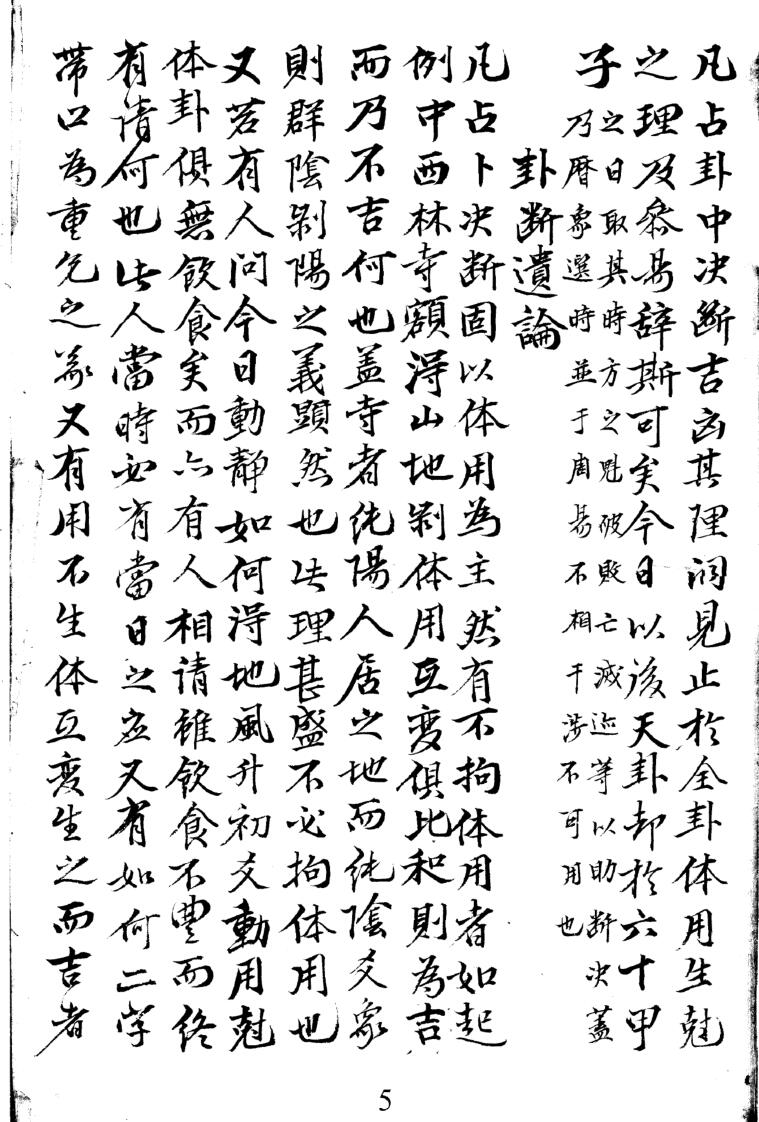 凡占卦中决断吉凶其理洞見止於全卦体用生尅
之理及叅易辞斯可矣今日以後天卦却於六十甲
子
之日取其時方之魁破敗亡滅迹等以助断决蓋
乃曆象選時並于周易不相干涉不可用也
卦断遺論
凡占卜决断固以体用為主然有不拘体用者如起
例中西林寺額淂山地剥体用互變俱比和則為吉
而乃不吉何也盖寺者纯陽人居之地而纯陰爻象
則群陰剥陽之義顕然也此理甚盛不必拘体用也
又若有人问今日動静如何淂地風升初爻動用尅
体卦俱無飲食矣而亦有人相请雖飲食不豊而终
有请何也此人當時必有當日之应又有如何二字
带口為重兑之義又有用不生体互變生之而吉者
5